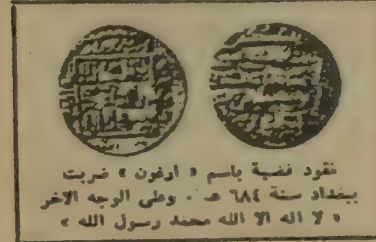 نقود فضية باسم « ارغون » ضربت
ببغداد سنة ٦٨٤ هـ . وعلى الوجه الاخر
« لا اله الا الله محمد رسول الله »